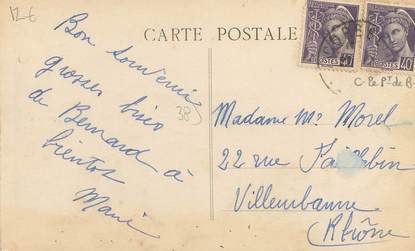 12-6
CARTE POSTALE
POSTES
40
POSTES
40
C. Le Pt de B-
38
Bon souvenir
grosses bises
de Bernard à
bientot
Marie
Madame Mce Morel
22 rue
Villeurbanne
Rhône